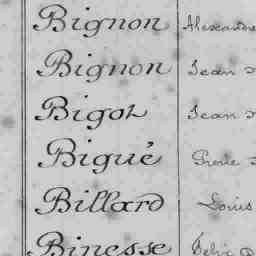 Bignon Alexandre
Bignon Jean
Bigot Jean
Bigué Pierre
Billard Louis
Binesse Felix